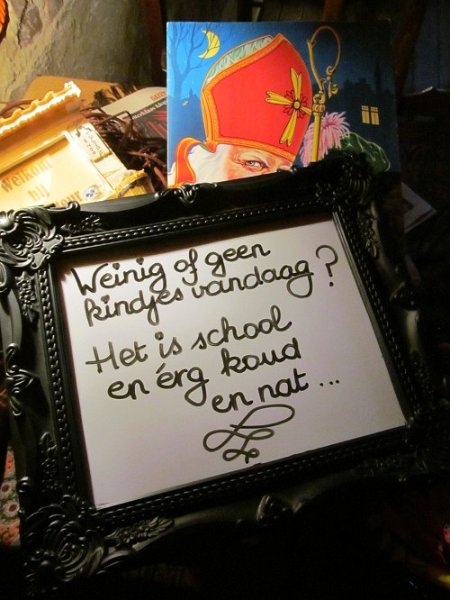 Welkom
bij
Weinig of geen
kindjes vandaag?
Het is school
en érg koud
en nat...